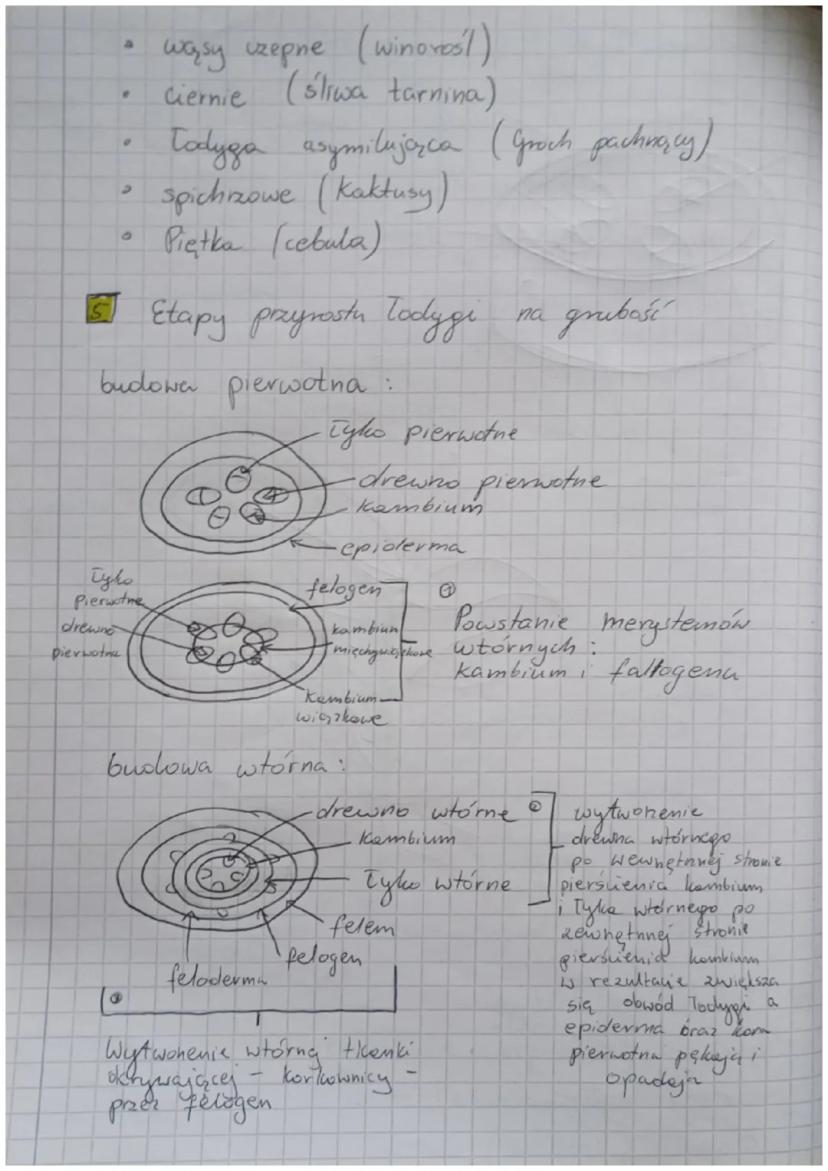 • wąsy czepne (winorośl)
• ciernie (śliwa tarnina)
• Łodyga asymilująca (Groch pachnący)
• spichrzowe (Kaktusy)
• Piętka (cebula)
5 Etapy przyrostu Łodygi na grubość
budowa pierwotna :
Łyko pierwotne
drewno pierwotne
kambium
epiderma
Łyko
pierwotne
drewno
pierwotne
felogen
kambium
międzywiązkowe
Kambium
wiązkowe
①
Powstanie merystemów
wtórnych :
kambium i fallogenu
budowa wtórna :
drewno wtórne
kambium
Łyko wtórne
felem
felogen
feloderma
② wytworzenie
drewna wtórnego
po wewnętrznej stronie
pierścienia kambium
i Łyka wtórnego po
zewnętrznej stronie
pierścienia kambium
w rezultacie zwiększa
się obwód Łodygi a
epiderma oraz kora
pierwotna pękają i
opadają
③
Wytworzenie wtórnej tkanki
okrywającej – korkownicy –
przez felogen